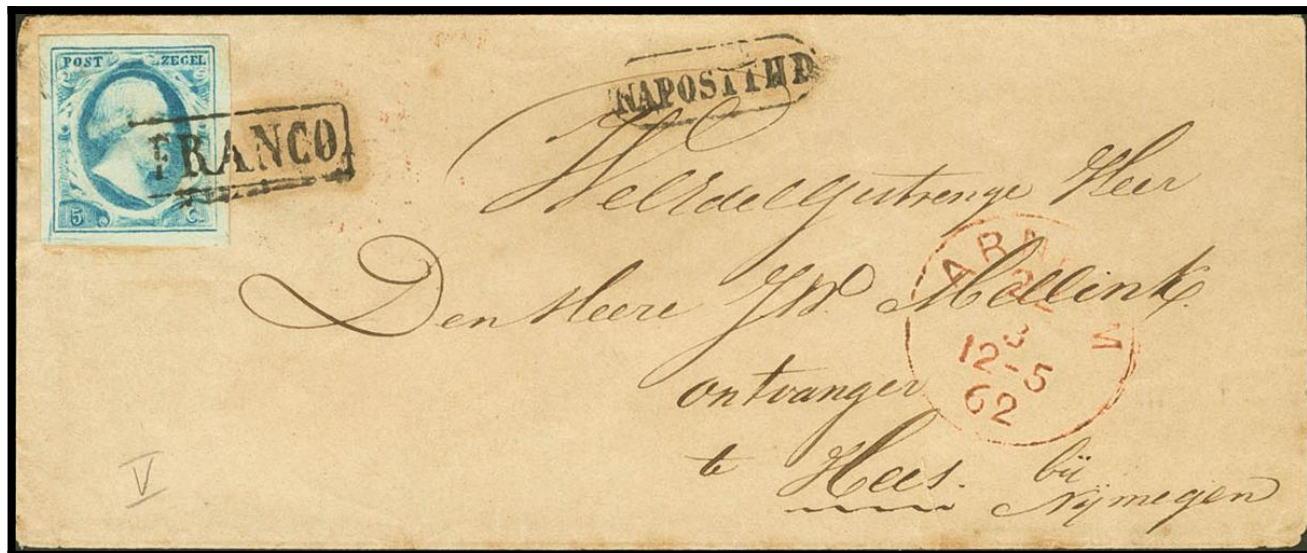 POST ZEGEL
5 C.
FRANCO
NAPOSTTIJD
WelEdelgestrenge Heer
Den Heere J.W. Mollink
ontvanger
te Hees. bij
Nijmegen
ARNHEM
22
3
12-5
62
V